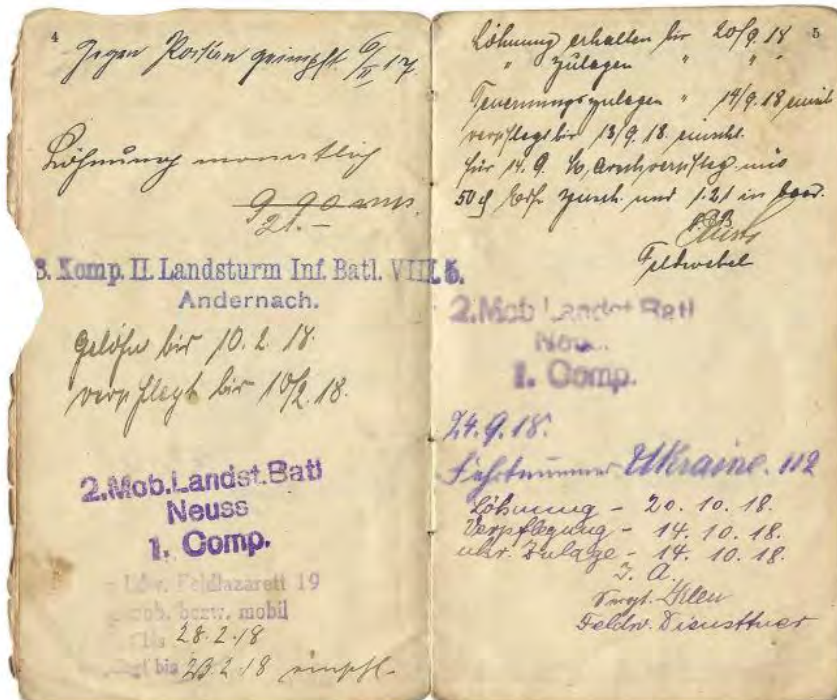 4
Gegen Pocken geimpft 6/II 17
Löhnung monatlich
9 90
21.–
3. Komp. II. Landsturm Inf. Batl. VIII. 5.
Andernach.
Gelöhn bis 10. 2. 18.
verpflegt bis 10/2. 18.
2.Mob.Landst.Batl
Neuss
1. Comp.
Feldlazarett 19
bezw. mobil
bis 28.2.18
bis 28.2.18
5
Löhnung erhalten bis 20/9 18
" Zulagen " "
Teuerungszulagen " 14/9.18 einschl
verpflegt bis 13/9. 18. einschl.
für 14. 9.
50 und 1.21 in
Feldwebel
2.Mob Landst Batl
Neu
1. Comp.
24.9.18.
Fahrtnummer Ukraine. 112
Löhnung – 20. 10. 18.
Verpflegung – 14. 10. 18.
ukr. Zulage – 14. 10. 18.
I. A.
Sergt.
Feldw. Diensttuer